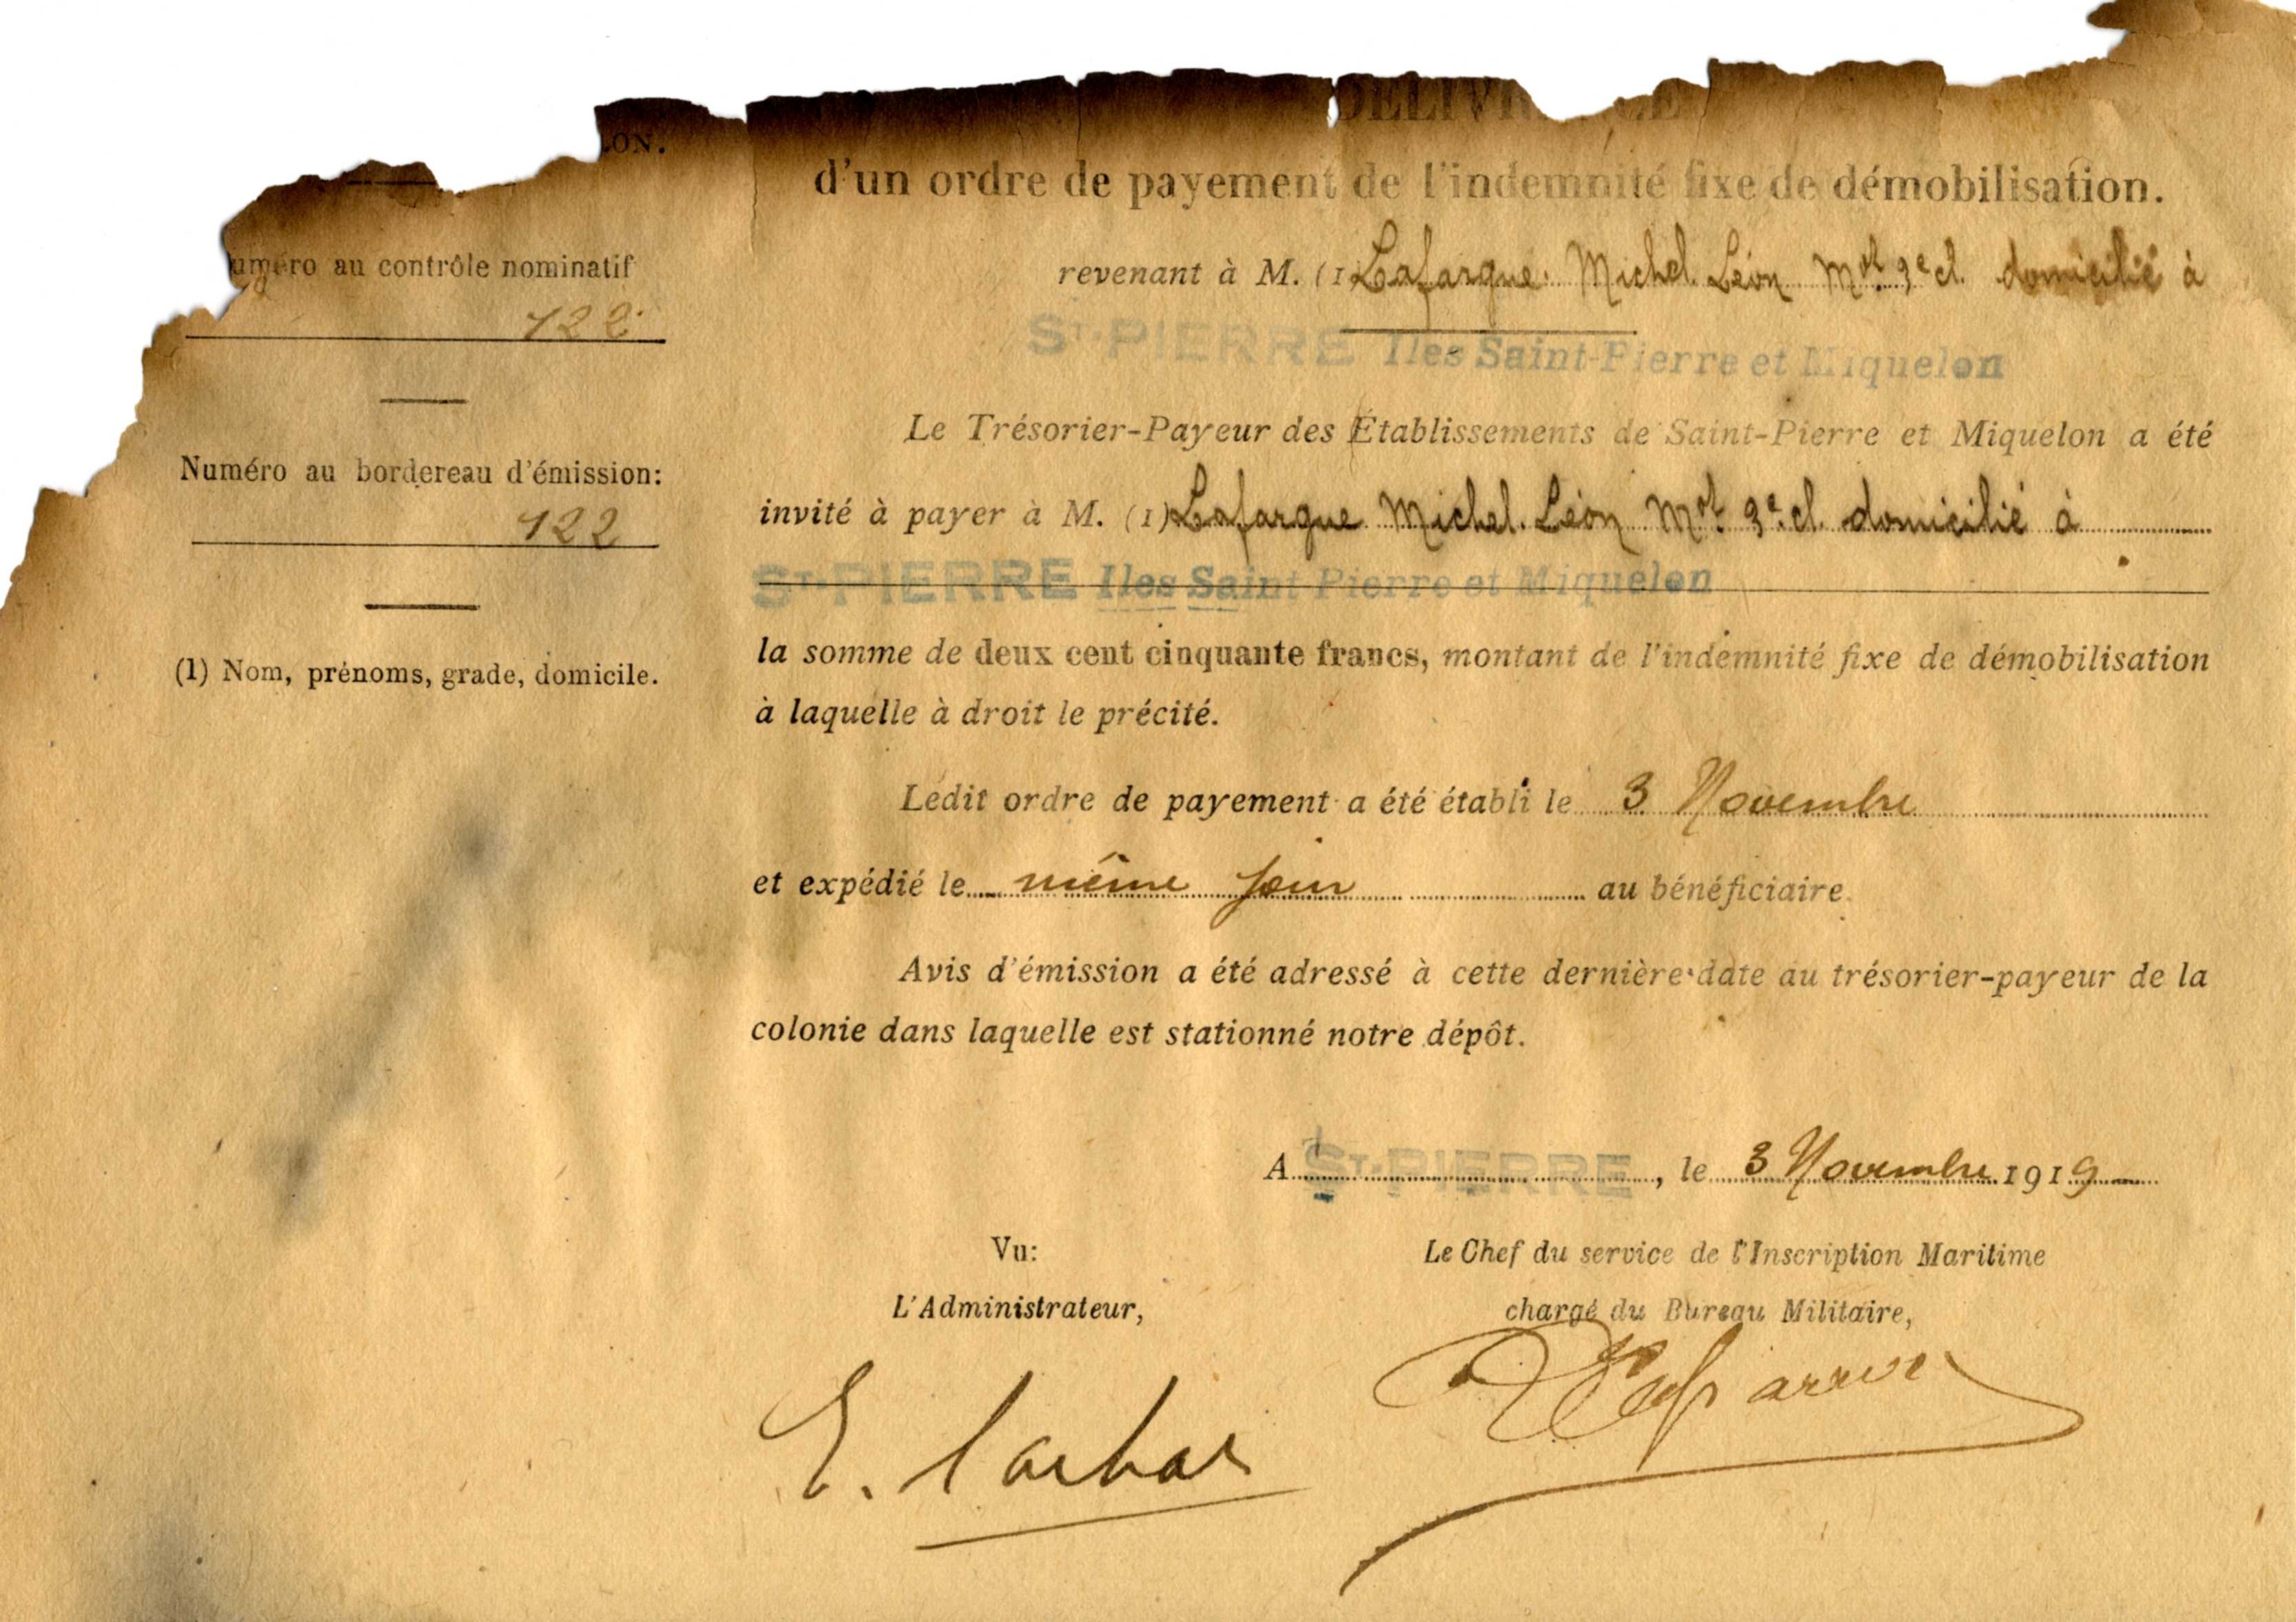 LON.
DÉLIVR CE
d'un ordre de payement de l'indemnité fixe de démobilisation.
uméro au contrôle nominatif
122
revenant à M. (1 Lafargue Michel Léon Mot 3e cl. domicilié à
ST-PIERRE Iles Saint-Pierre et Miquelon
Le Trésorier-Payeur des Établissements de Saint-Pierre et Miquelon a été
Numéro au bordereau d'émission:
122
invité à payer à M. (1) Lafargue Michel Léon Mot 3e cl. domicilié à
ST-PIERRE Iles Saint Pierre et Miquelon
(1) Nom, prénoms, grade, domicile.
la somme de deux cent cinquante francs, montant de l'indemnité fixe de démobilisation
à laquelle à droit le précité.
Ledit ordre de payement a été établi le 3 Novembre
et expédié le même jour au bénéficiaire.
Avis d'émission a été adressé à cette dernière date au trésorier-payeur de la
colonie dans laquelle est stationné notre dépôt.
A ST-PIERRE, le 3 Novembre 1919
Vu:
L'Administrateur,
Le Chef du service de l'Inscription Maritime
chargé du Bureau Militaire,
E.